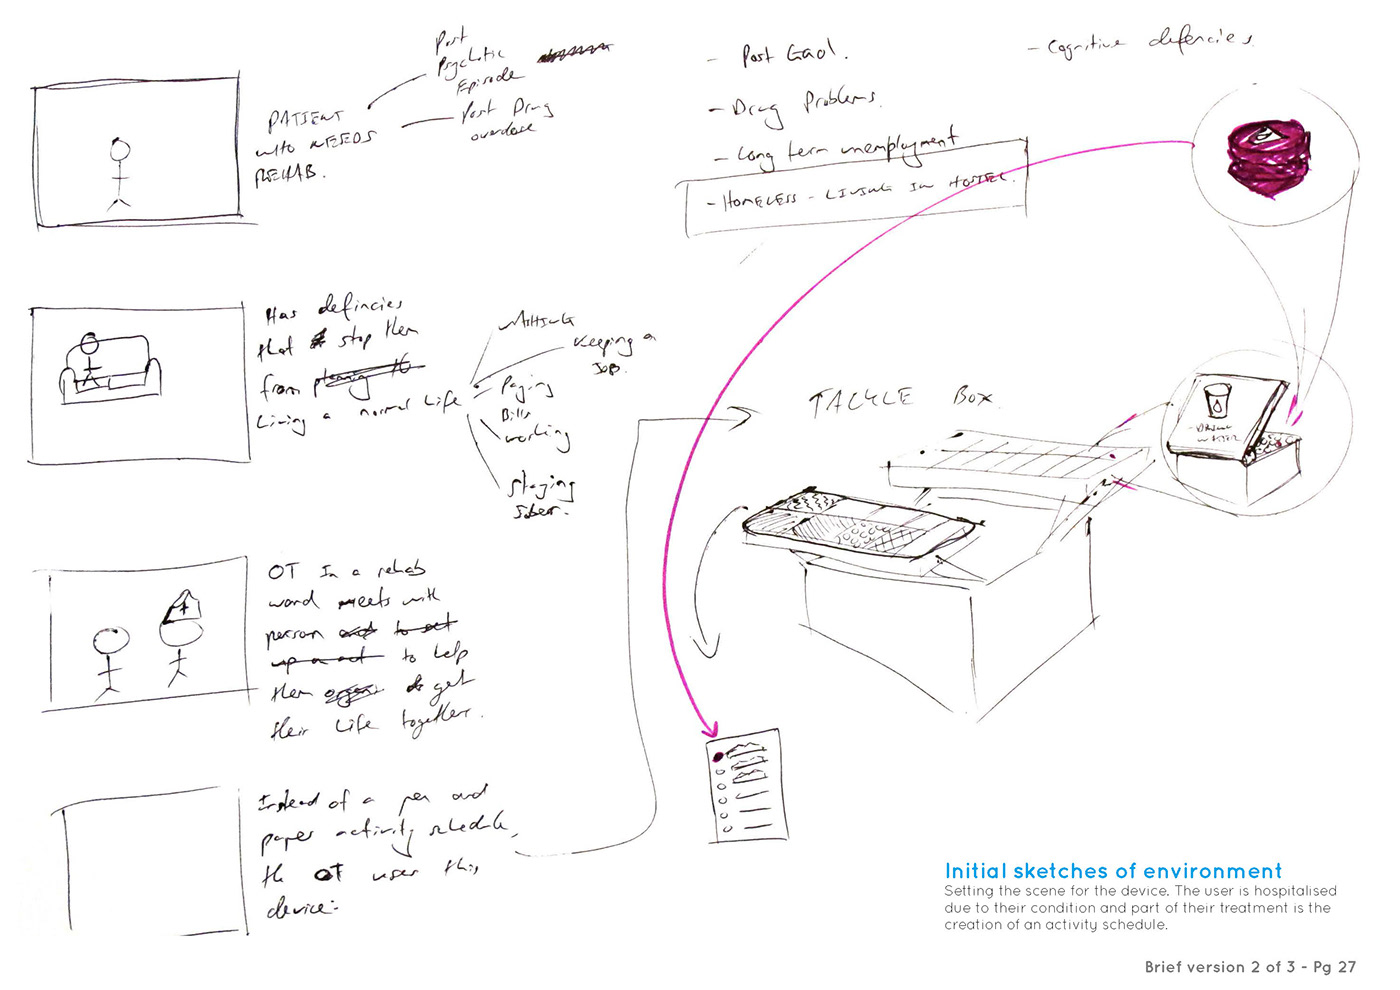 PATIENT
WHO NEEDS
REHAB.
Post
Psychotic
Episode
Post Drug
overdose
- Post Gaol.
- Drug Problems.
- Long term unemployment
- HOMELESS - LIVING IN HOSTEL.
- Cognitive defencies.
Has defincies
that stop them
from
Living a normal life
Keeping a
Job.
Paying
Bills
working
Staying
Sober.
OT In a rehab
ward meets with
person
to help
them get
their life together.
Instead of a pen and
paper activity schedule,
the OT uses this
device:-
TACKLE BOX.
DRINK
WATER
Initial sketches of environment
Setting the scene for the device. The user is hospitalised
due to their condition and part of their treatment is the
creation of an activity schedule.
Brief version 2 of 3 - Pg 27